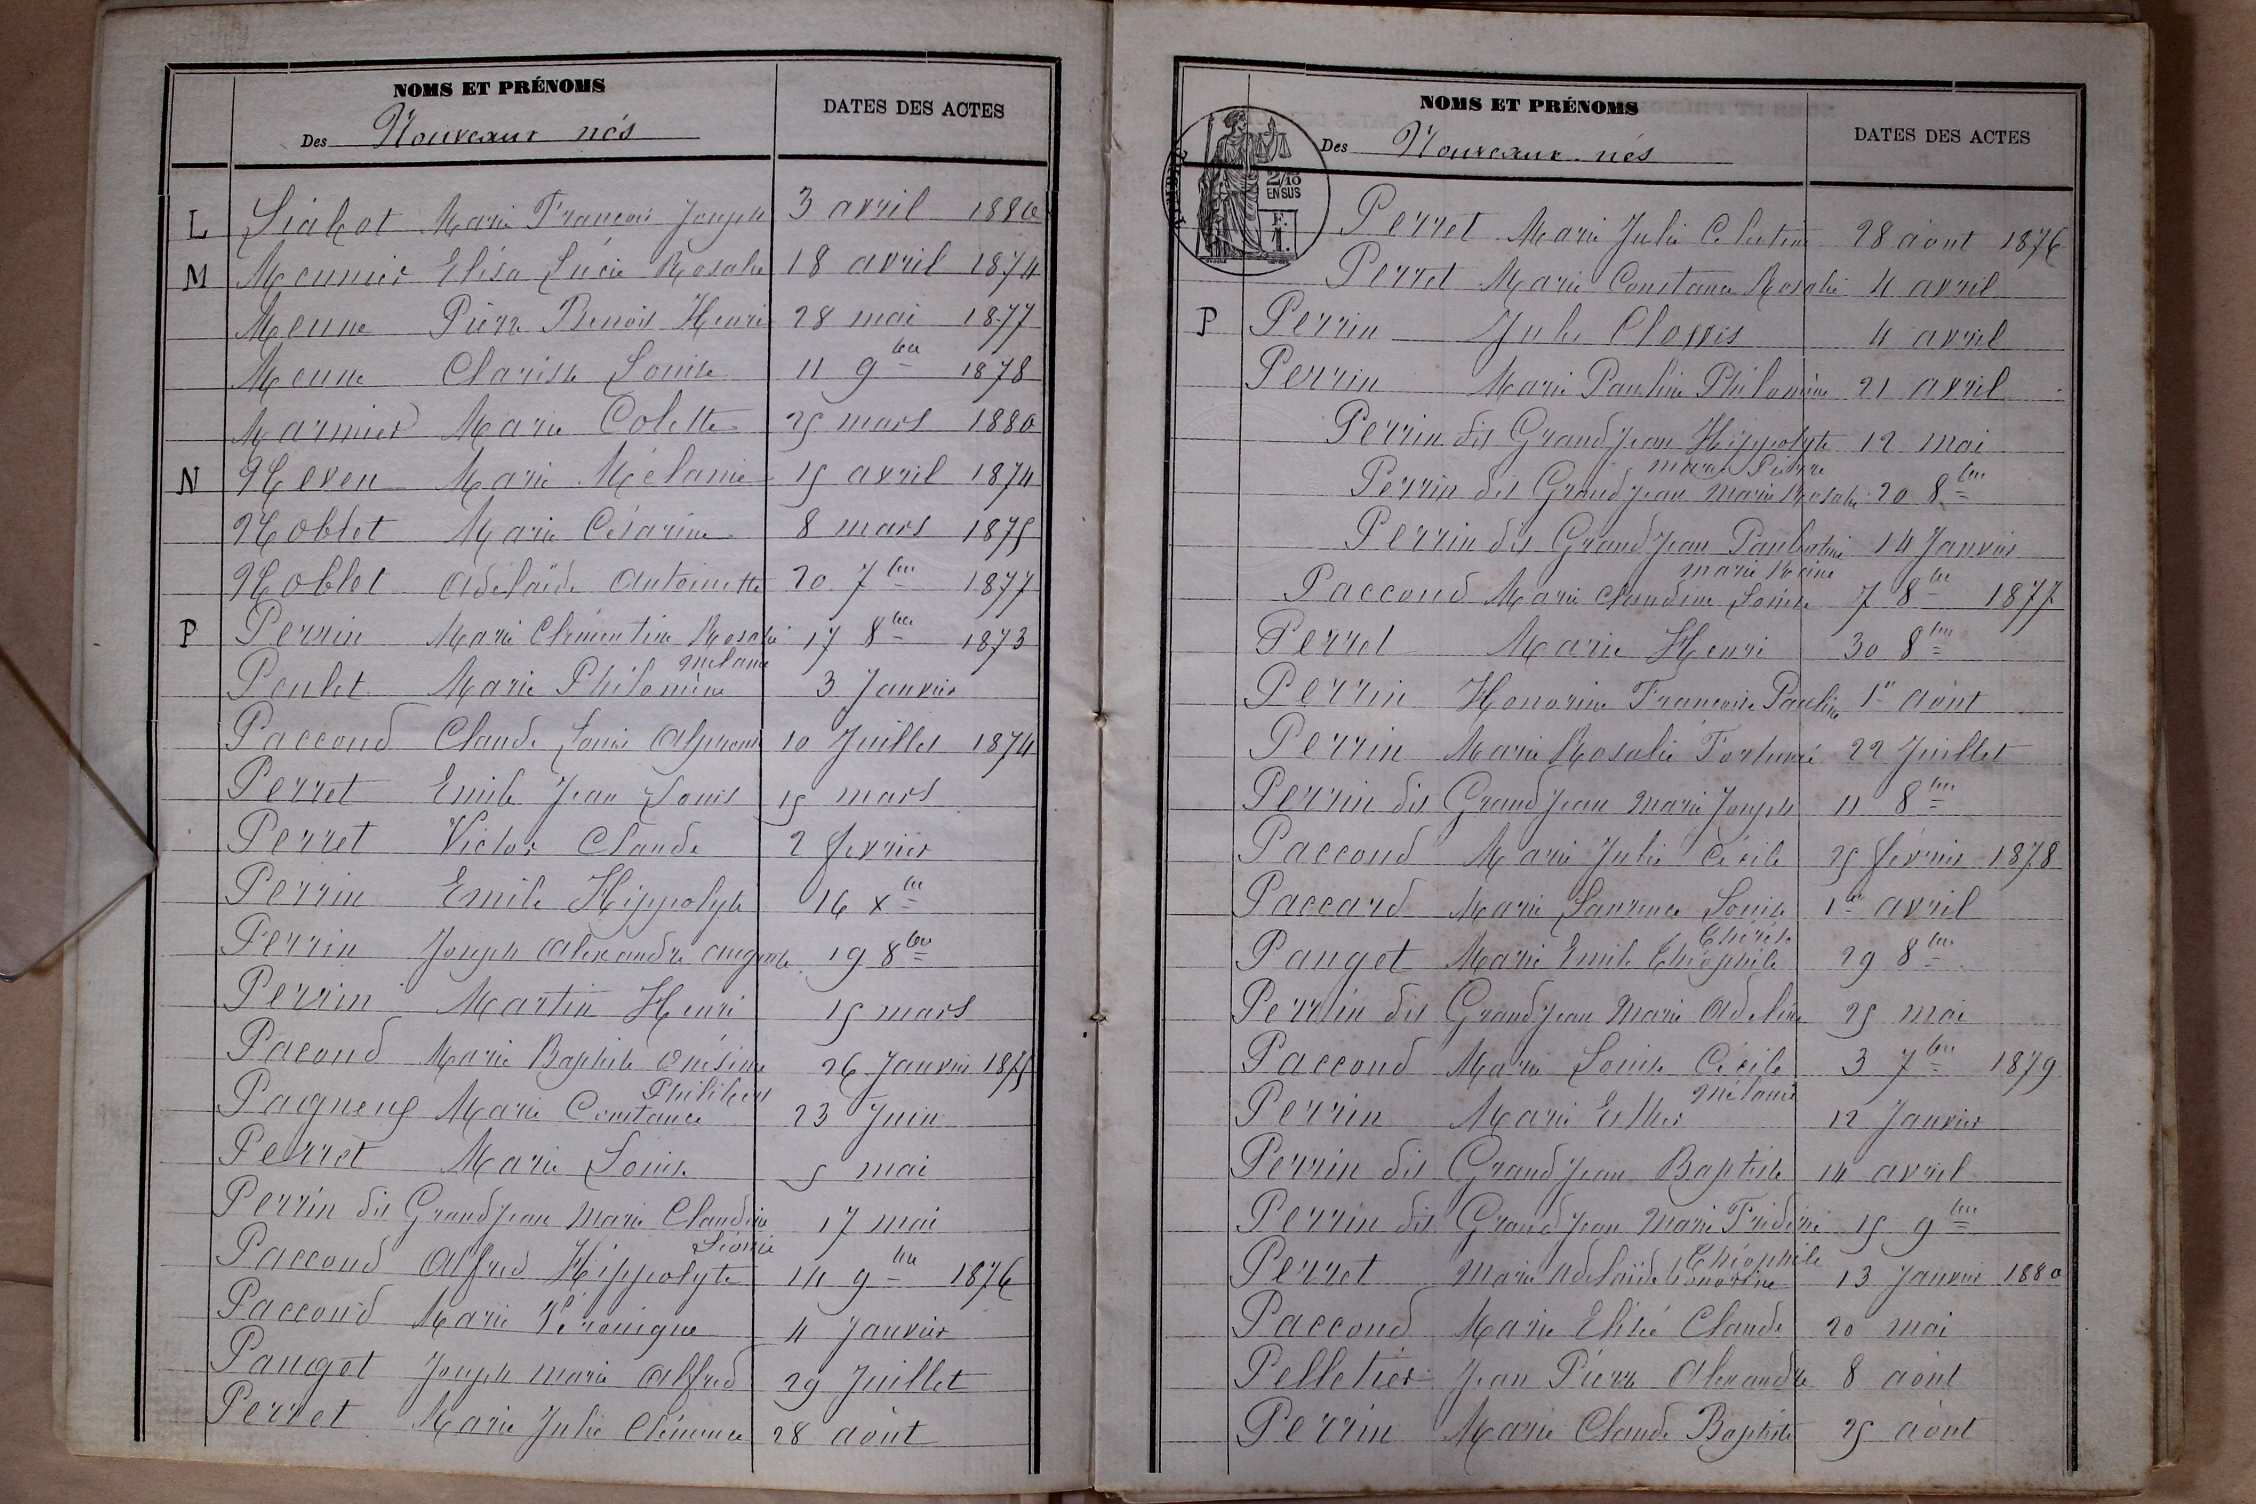 NOMS ET PRÉNOMS
Des Nouveaux nés
DATES DES ACTES
L Marie François Joseph 3 avril 1880
M Meunier Elisa Lucie Rosalie 18 avril 1874
Meune Pierre Benoit Henri 28 mai 1877
Meune Clarisse Louise 11 9bre 1878
Marmier Marie Colette 25 mars 1880
N Neven Marie Mélanie 15 avril 1874
Noblet Marie Césarine 8 mars 1875
Noblet Adélaïde Antoinette 20 7bre 1877
P Perrin Marie Clémentine Rosalie 17 8bre 1873
Mélanie
Poulet Marie Philomène 3 Janvier
Paccoud Claude Louis Alphonse 10 Juillet 1874
Perret Emile Jean Louis 15 mars
Perret Victor Claude 2 février
Perrin Emile Hippolyte 16 xbre
Perrin Joseph Alexandre Auguste 19 8bre
Perrin Martin Henri 15 mars
Pacoud Marie Baptiste Onésime 26 Janvier 1875
Philibert
Pagneux Marie Constance 23 Juin
Perret Marie Louise 5 mai
Perrin dit Grandjean Marie Claudine 17 mai
Léonie
Paccoud Alfred Hippolyte 14 9bre 1876
Paccoud Marie Véronique 4 Janvier
Panget Joseph Marie Alfred 29 Juillet
Perret Marie Julie Clémence 28 août
NOMS ET PRÉNOMS
Des Nouveaux nés
DATES DES ACTES
2/10
EN SUS
F.
1.
Perret Marie Julie Célestine 28 août 1876
Perret Marie Constance Rosalie 4 avril
P Perrin Jules Clovis 4 avril
Perrin Marie Pauline Philomène 21 avril
Perrin dit Grandjean Hippolyte 12 mai
Marie Pierre
Perrin dit Grandjean Marie Rosalie 20 8bre
Perrin dit Grandjean 14 Janvier
Marie Reine
Paccoud Marie Claudine Louise 7 8bre 1877
Perret Marie Henri 30 8bre
Perrin Honorine Françoise Pauline 1er août
Perrin Marie Rosalie Fortunée 22 Juillet
Perrin dit Grandjean Marie Joseph 11 8bre
Paccoud Marie Julie Cécile 25 février 1878
Paccard Marie Laurence Louise 1er avril
Thérèse
Panget Marie Emile Théophile 29 8bre
Perrin dit Grandjean Marie Adeline 25 mai
Paccoud Marie Louise Cécile 3 7bre 1879
Mélanie
Perrin Marie Esther 12 Janvier
Perrin dit Grandjean Baptiste 14 avril
Perrin dit Grandjean Marie 15 9bre
Théophile
Perret Marie Adélaïde Honorine 13 Janvier 1880
Paccoud Marie Elisée Claude 20 mai
Pelletier Jean Pierre Alexandre 8 août
Perrin Marie Claude Baptiste 25 août